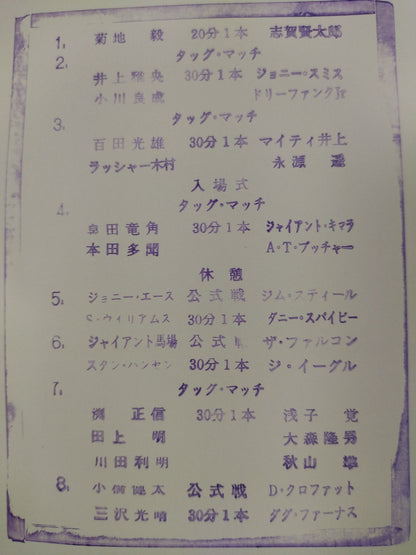 1. 菊地 毅 20分1本 志賀賢太郎
2. タッグ・マッチ
井上雅央 30分1本 ジョニー・スミス
小川良成 ドリーファンクJr
3. タッグ・マッチ
百田光雄 30分1本 マイティ井上
ラッシャー木村 永源 遥
入場式
4. タッグ・マッチ
泉田竜角 30分1本 ジャイアント・キマラ
本田多聞 A・T・ブッチャー
休憩
5. ジョニー・エース 公式戦 ジム・スティール
S・ウィリアムス 30分1本 ダニー・スパイビー
6. ジャイアント馬場 公式戦 ザ・ファルコン
スタン・ハンセン 30分1本 ジ・イーグル
7. タッグ・マッチ
渕 正信 30分1本 浅子 覚
田上 明 大森隆男
川田利明 秋山 準
8. 小橋健太 公式戦 D・クロファット
三沢光晴 30分1本 ダグ・ファーナス